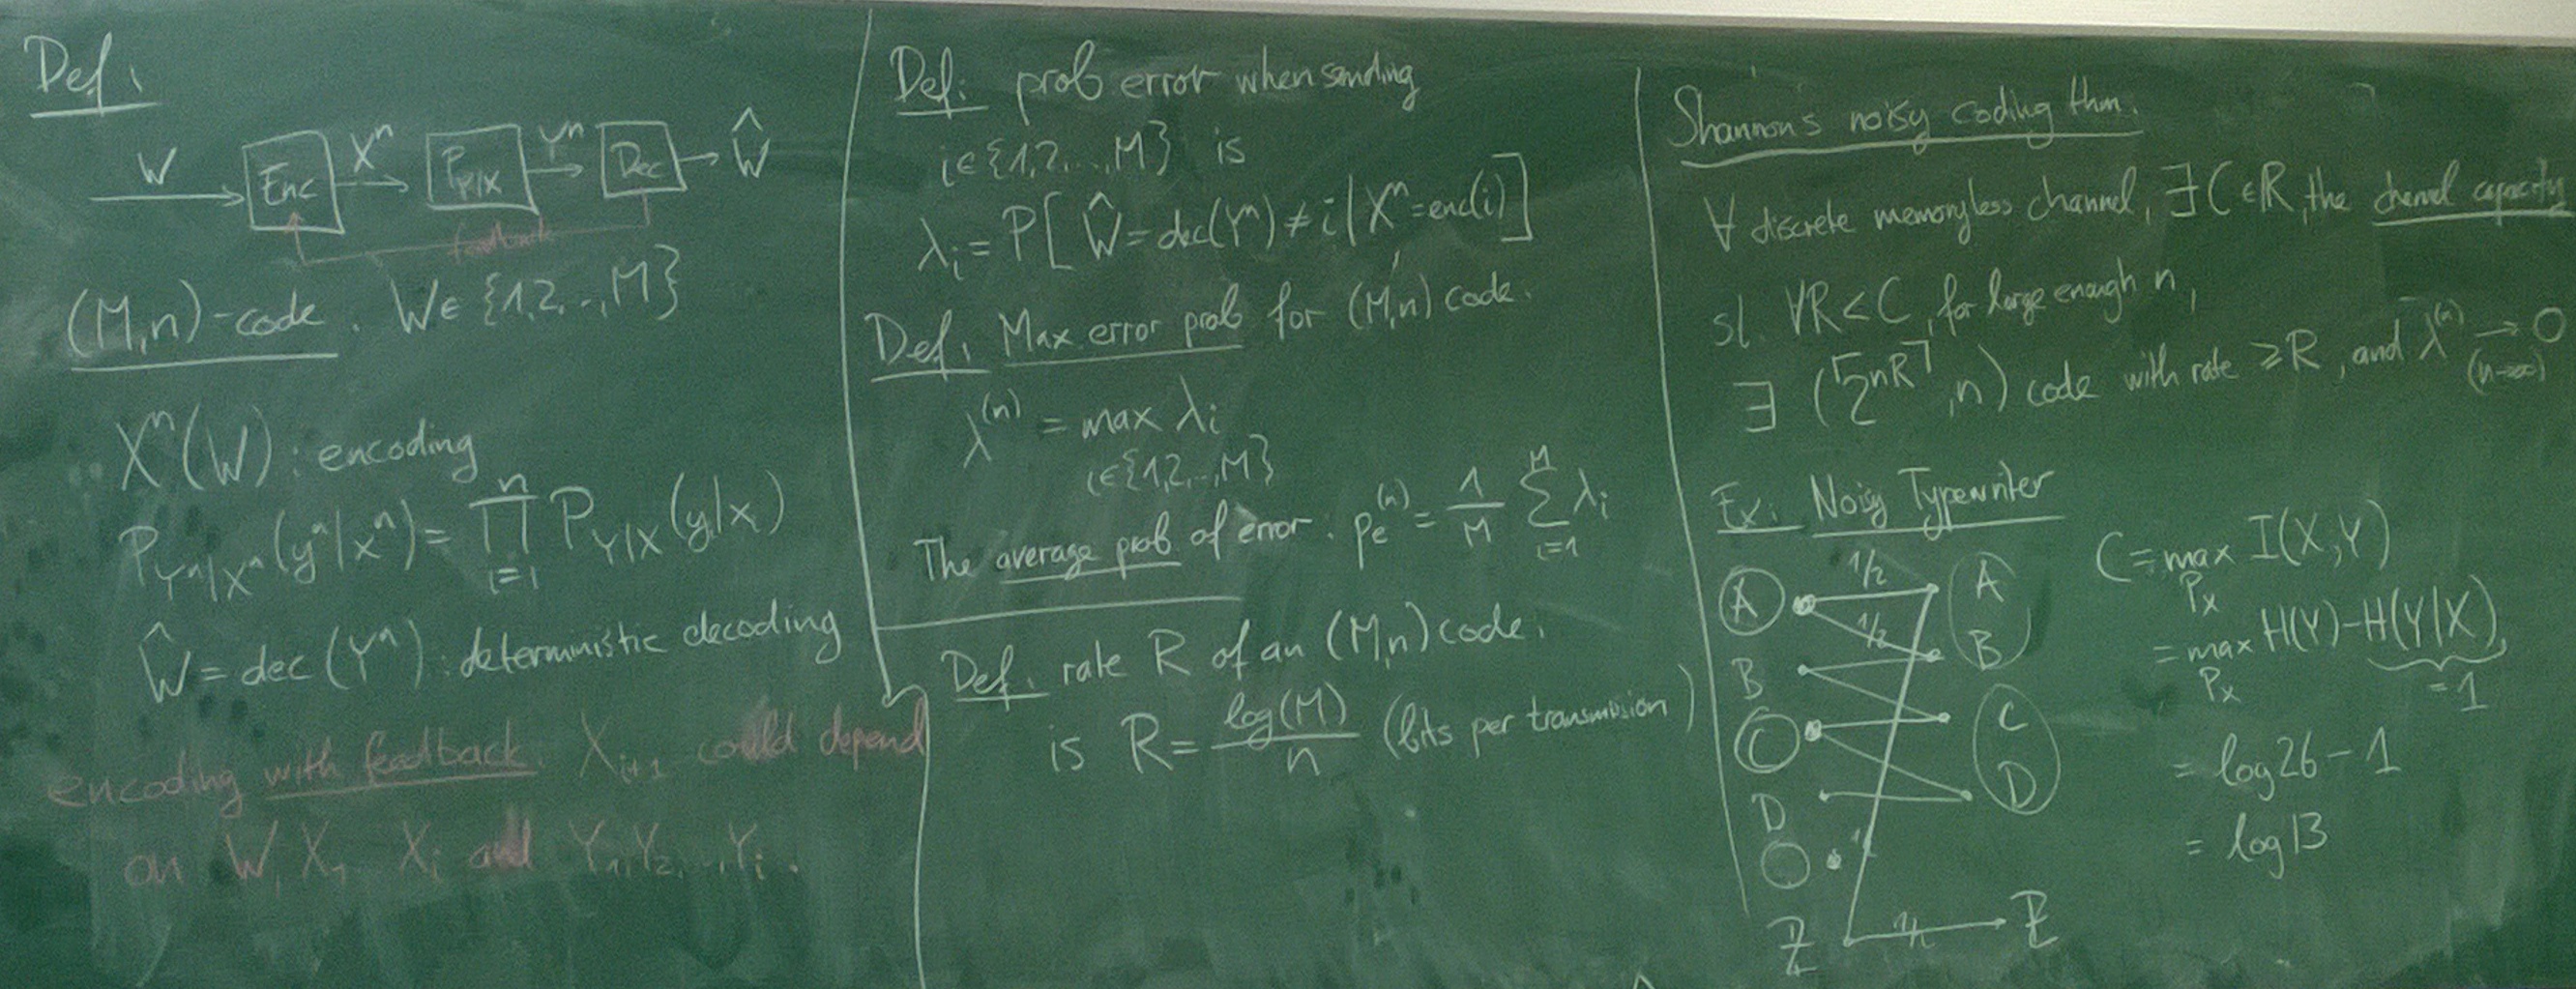 Def:
W Enc Xⁿ P_{Y|X} Yⁿ Dec Ŵ
feedback
(M,n)-code. W∈{1,2,..,M}
Xⁿ(W): encoding
P_{Yⁿ|Xⁿ}(yⁿ|xⁿ) = ∏_{i=1}^{n} P_{Y|X}(y|x)
Ŵ = dec(Yⁿ): deterministic decoding
encoding with feedback: X_{i+1} could depend
on W, X₁ X_i and Y₁,Y₂,..,Y_i.
Def: prob error when sending
i∈{1,2,..,M} is
λ_i = P[Ŵ = dec(Yⁿ) ≠ i | Xⁿ=enc(i)]
Def: Max error prob for (M,n) code.
λ^{(n)} = max λ_i
i∈{1,2,..,M}
The average prob of error: p_e^{(n)} = 1/M ∑_{i=1}^{M} λ_i
Def: rate R of an (M,n) code.
is R = log(M)/n (bits per transmission)
Shannon's noisy coding thm.
∀ discrete memoryless channel, ∃ C∈ℝ, the channel capacity
st. ∀R<C, for large enough n,
∃ (⌈2^{nR}⌉, n) code with rate ≥R, and λ^{(n)} → 0
(n→∞)
Ex: Noisy Typewriter
A 1/2 A
1/2 B
B
C C
D D
Z 1/2 Z
C = max_{P_X} I(X;Y)
= max_{P_X} H(Y)-H(Y|X)
=1
= log26-1
= log13